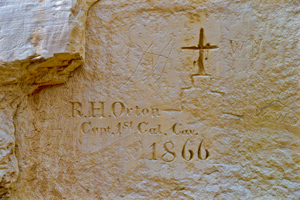 R.H.Orton
Capt. 1st Cal. Cav.
1866